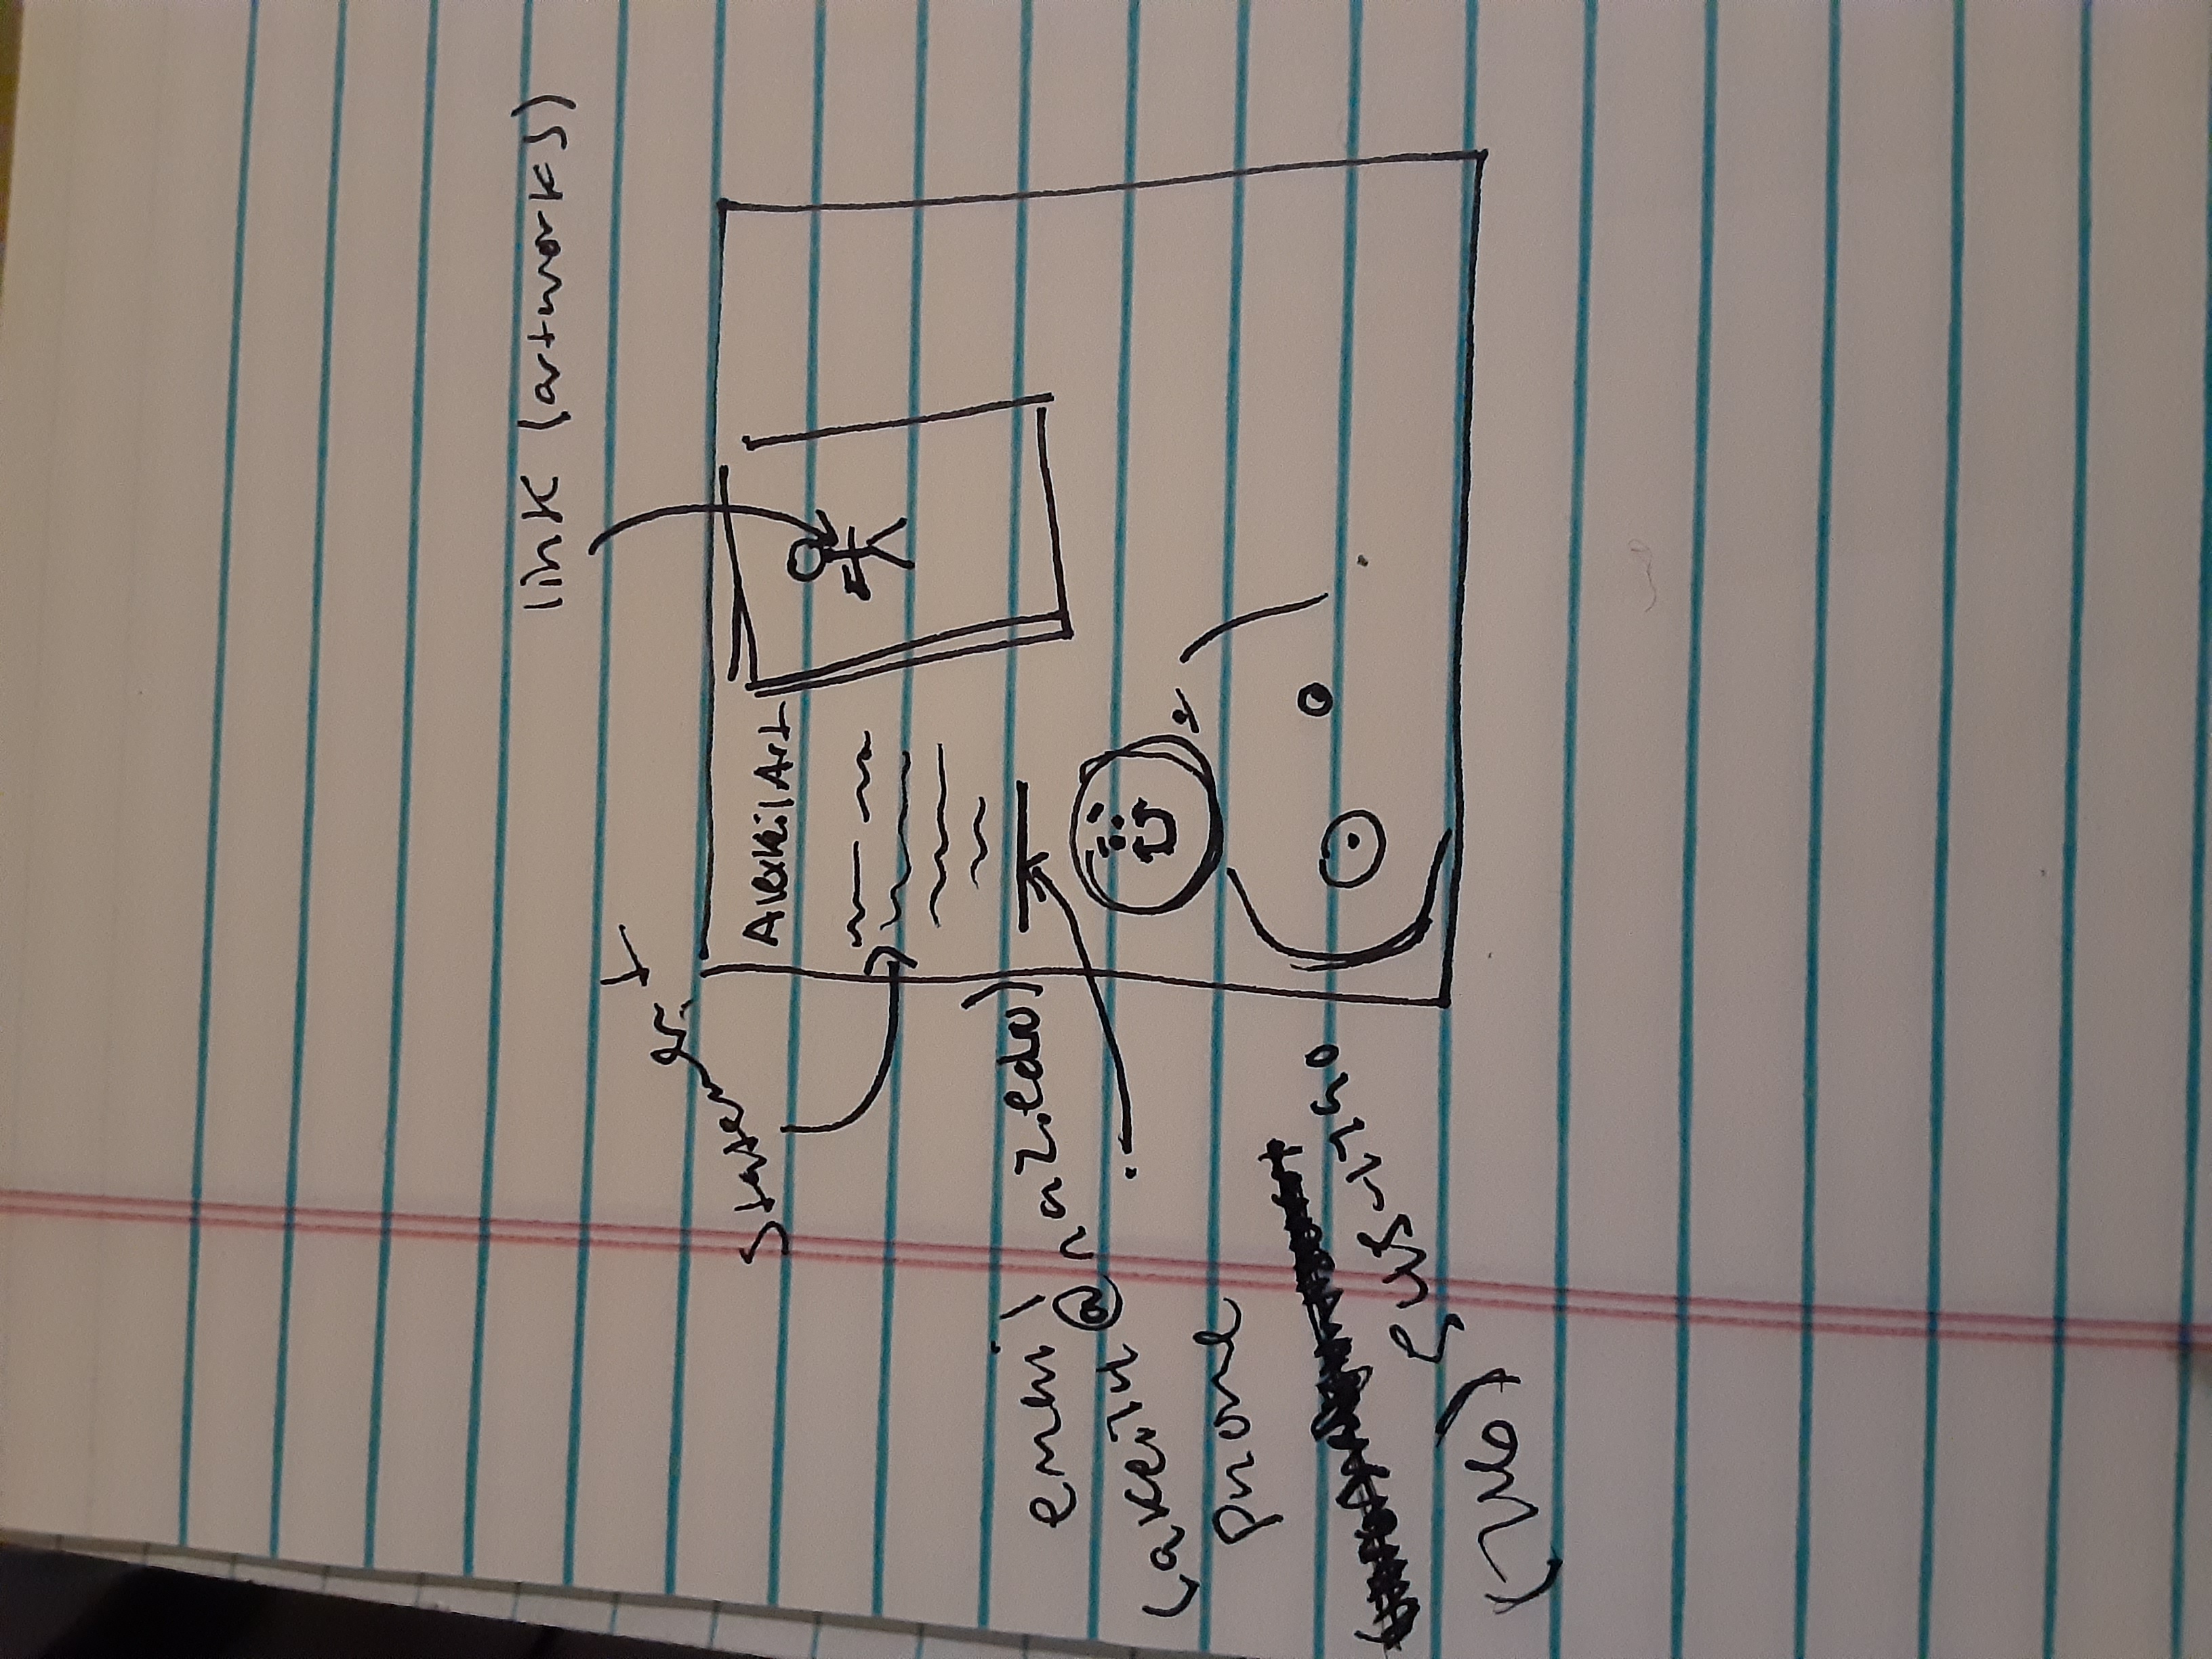 link (artworks)
Statement
AlexKeilArt
email
(akeil4@naz.edu)
phone
(716)